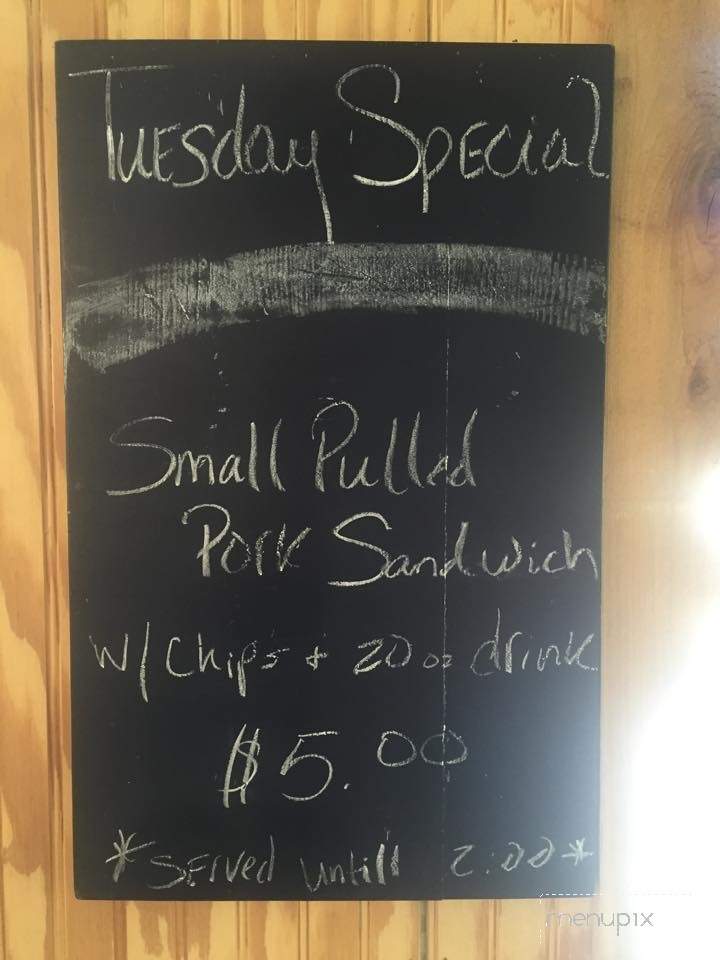 Tuesday Special
Small Pulled
Pork Sandwich
w/ Chips + 20 oz drink
$5.00
*Served untill 2:00*
menupix